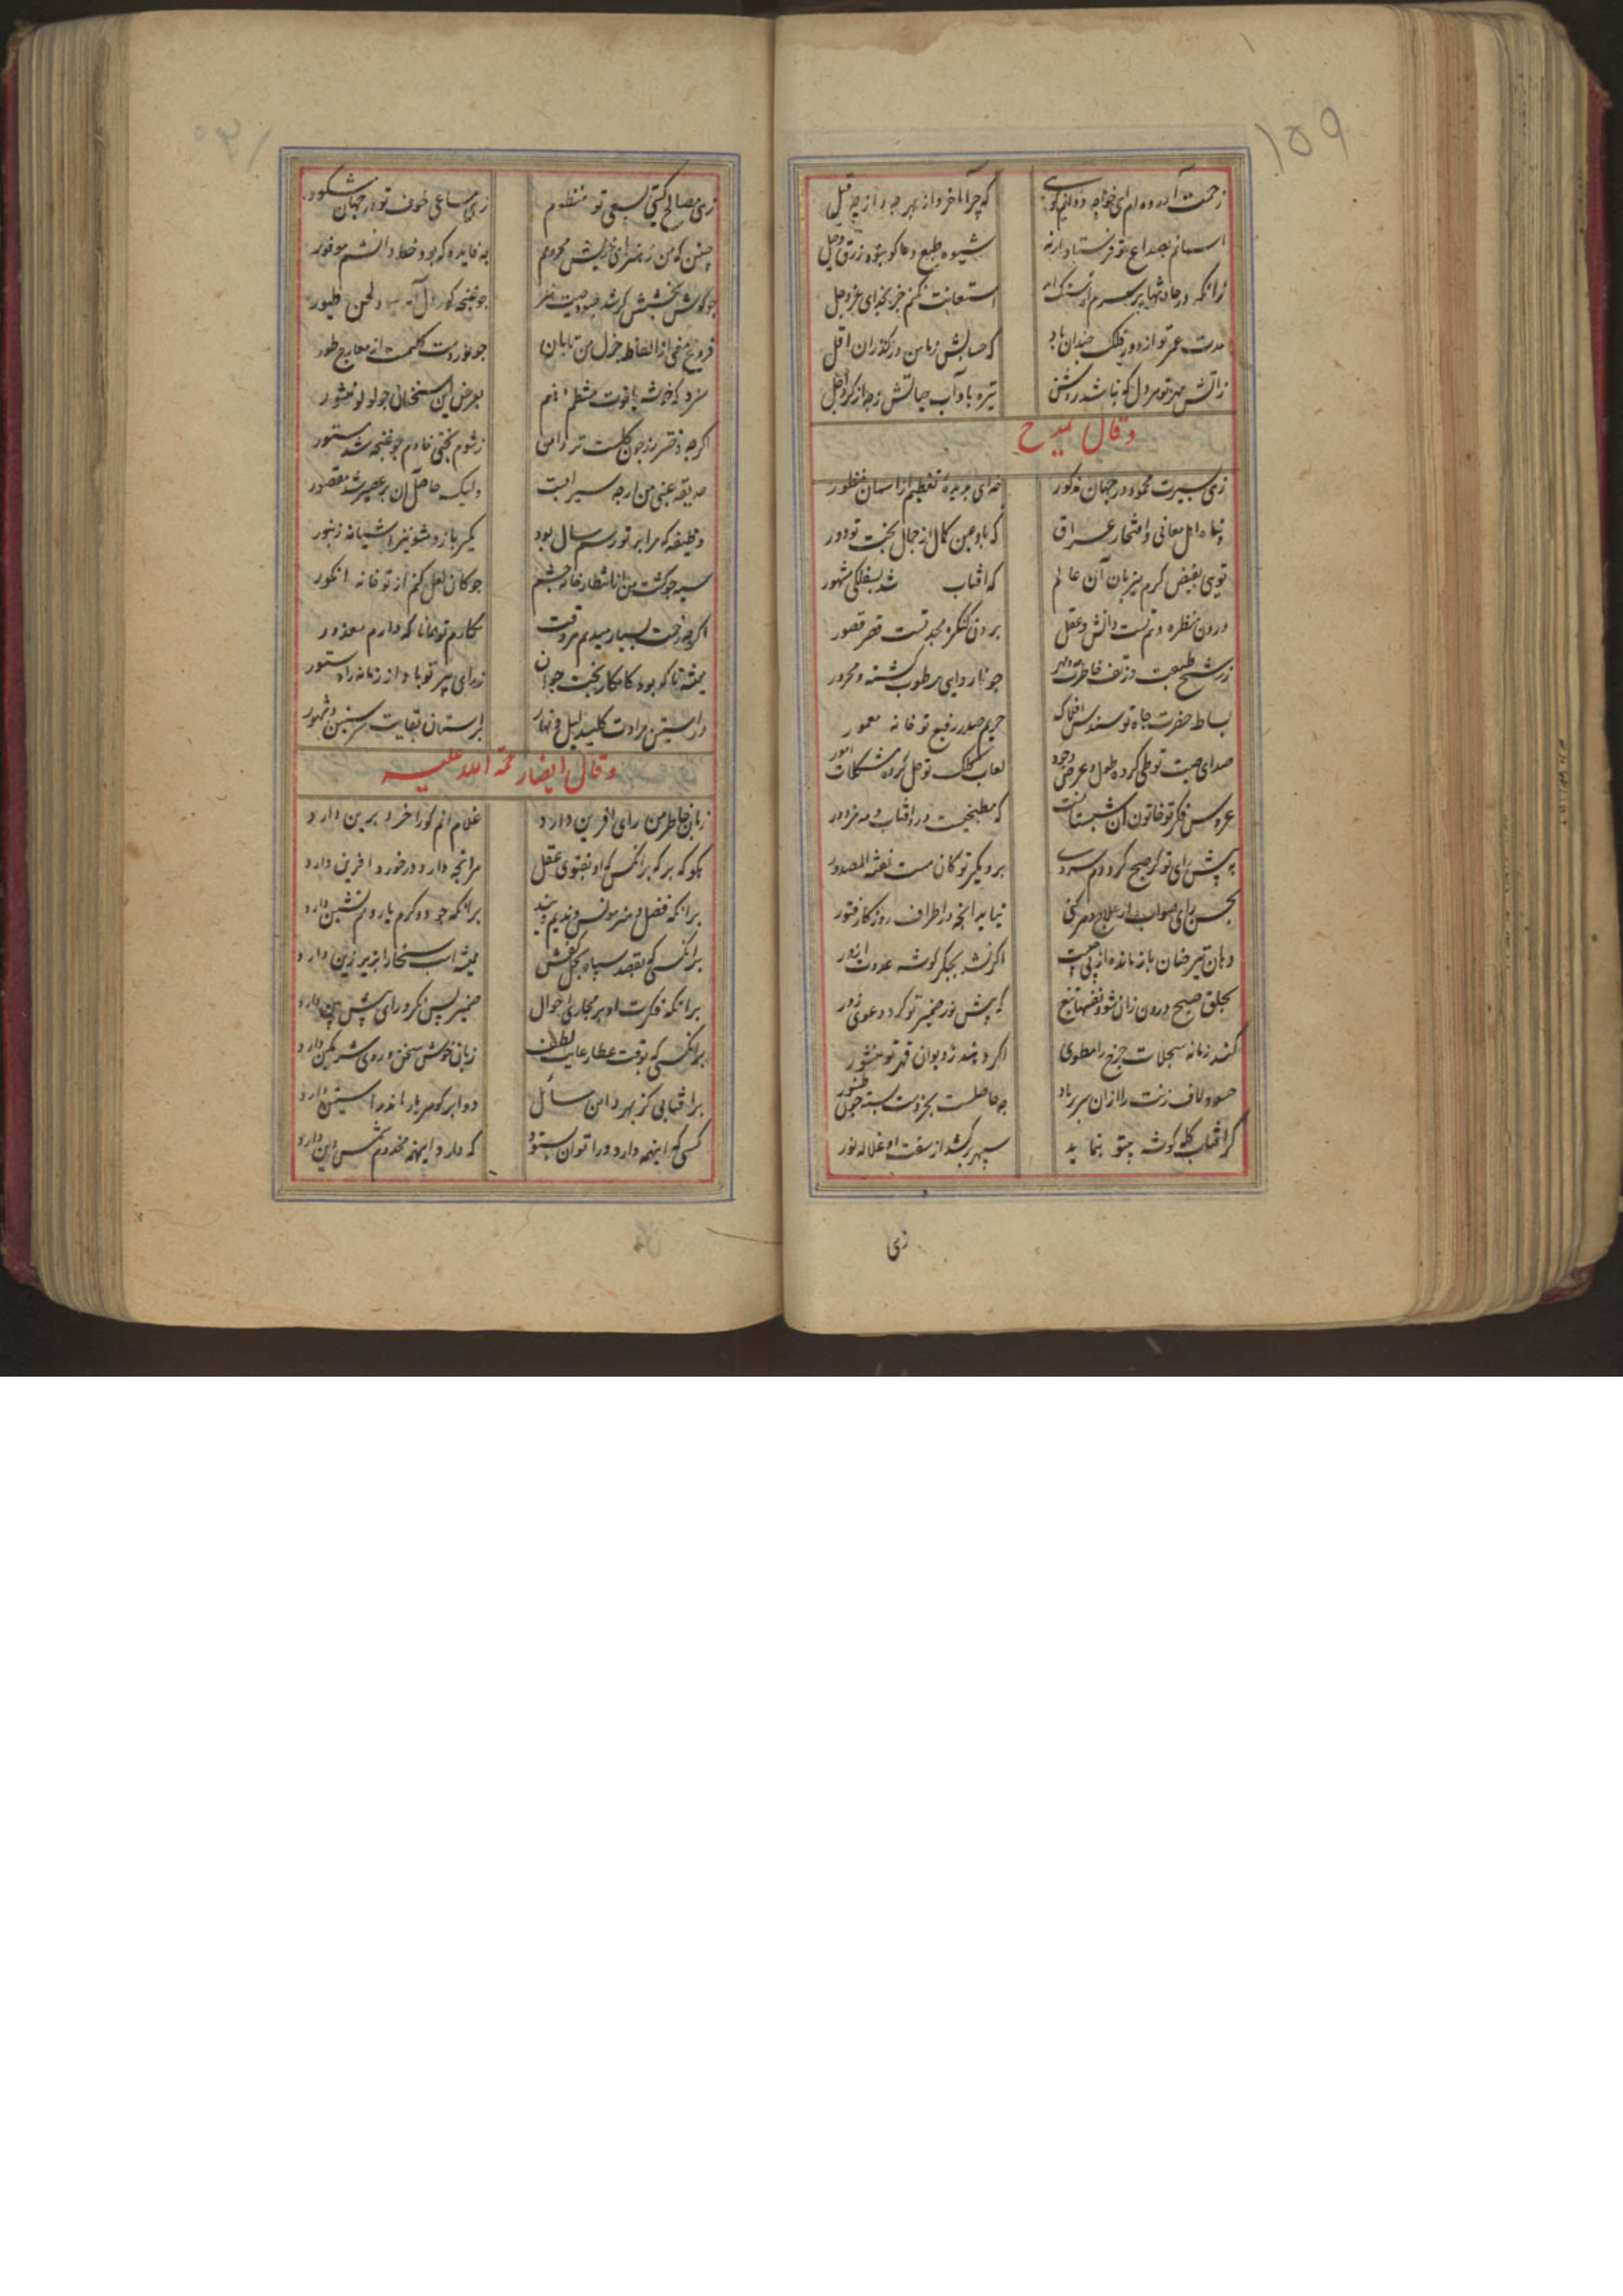 ۱۵۹
زحمت آورده‌ام ای خواجه
که چرا آخر و از بهر چه و از چه قبل
آسمانم بصداع تو فرستاد ارنه
شیوه طبع دعاکو نبود زرق و حیل
زانکه در حادثها بر سرم ار سنک آید
استعانت نکنم جز بخدای عز و جل
مدت عمر تو از دور فلک چندان باد
که حسابش زمان در گذران اقل
زآتش مهر تو هر دل که نباشد روشن
تیره باد آب حیاتش
وقال یمدح
زهی بسیرت محمود در جهان مذکور
خهی جریده تعظیم از آسمان منظور
پناه اهل معانی و افتخار عراق
که باد عین کمال از جمال بخت تو دور
تویی بفیض کرم میزبان آن عالم
که آفتاب شد بطفلکی مشهور
درون منظره تست دانش و عقل
برون کنکره مجد تست قصر قصور
ز رشح طبعت
چو نار دانی مرطوب کشته و محرور
بساط حضرت جاه تو سندس افلاک
حریم صدر رفیع تو خانه معمور
صدای صیت تو طی کرده طول و عرض وجود
لعاب کلک تو حل کرده مشکلات امور
عروس فکر تو خاتون آن شبستانست
که مطبخیست درو آفتاب و مه مزدور
به پیش رای تو کر صبح کرد دم سردی
برو مکیر تو کان هست نفثة المصدور
بحسن رای صواب از علاج
نیابد آنچه در اطراف روز کار فتور
دهان تیر ز خان بازمانده از پی چیست
اکر نشد بجکر کوشه عدوت آزور
بحلق صبح درون زان شود نفسها تیغ
که پیش نور ضمیر تو کرد دعوی زور
کند زمانه سجلات چرخ را مطوی
اکر دهند ز دیوان قهر تو منشور
حسود لاف زنت را از آن سر پر باد
چه حاصلست بجز دست بسته چون طنبور
کر آفتاب کله کوشه بتو بنماید
سپهر برکشد از سفت او غلاله نور
زهی
زهی مصالح کیتی بسعی تو منظوم
زهی مساعی خوب تو در جهان مشکور
چنین که من ز هنرهای خویش محرومم
چه فایده که بود حظ دانشم موفور
چو کوش بخشش
چو غنچه کور دل آمد ز لحن طیور
فروغ معنی از الفاظ جزل من تابان
چو نور دست کلیمست از معارج طور
سزد که خوشه یاقوت منتظم
بعرض این سخنان چو لولو منثور
اکر چه دختر رز چون کلست تر دامن
ز شوم بختی خادم چو غنچه شد مستور
حدیقه عنبی من ار چه سیرابست
ولیک حاصل آن بر عصیر شد مقصور
وظیفه که مرا بر تو رسم سال بود
یکیر باز
سپید کشت من از انتظار خانه چشم
چو کان لعل کنم از تو خانه انکور
اکر چه زحمت بسیار میدهم هر وقت
مکارم تو همانا که داردم معذور
همیشه تا که بود کامکار بخت جوان
ز رای پیر تو بادا زمانه را دستور
در آستین مرادت کلید لیل و نهار
بر آستان بقایت سر سنین و شهور
وقال ایضا رحمة الله علیه
زبان خاطر من رای آفرین دارد
غلام آنم کو را خرد برین دارد
بکو که بر که بر آنکس که او بفتوی عقل
هر آنچه دارد در خورد آفرین دارد
بر آنکه فضل و هنر مونس و ندیم ویند
بر آنکه جود و کرم یار و همنشین دارد
بر آنکسی که بقصد سپاه بخل کفش
همیشه اسب سخا را بزیر زین دارد
بر آنکه فکرت او بر مجاری احوال
ضمیر پس نکر و رای پیش بین دارد
بر آنکسی که بوقت عطا رعایت لطف
زبان خوش سخن و روی شرمکین دارد
بر آفتابی کز بهر دامن سائل
دو ابر کوهر بار اندر آستین دارد
کسی که اینهمه دارد ورا توان بستود
که دارد اینهمه مخدوم شمس دین دارد